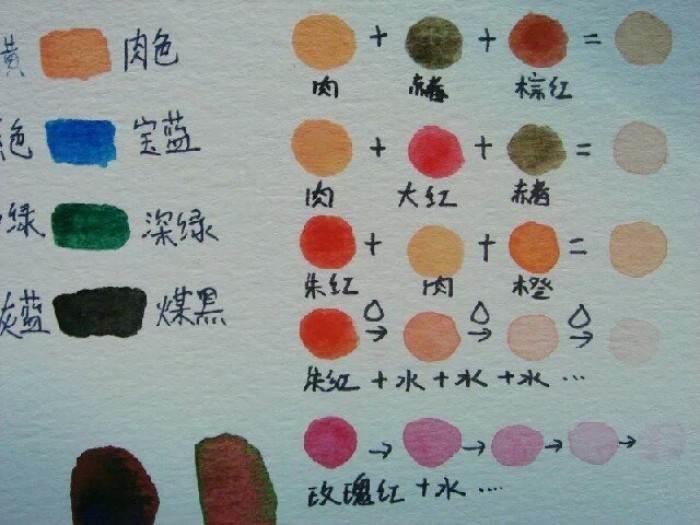 黄 肉色
宝蓝
绿 深绿
灰蓝 煤黑
+ + =
肉 赭 棕红
+ + =
肉 大红 赭
+ + =
朱红 肉 橙
→ → →
朱红 + 水 + 水 + 水 …
→ → → →
玫瑰红 + 水 ….